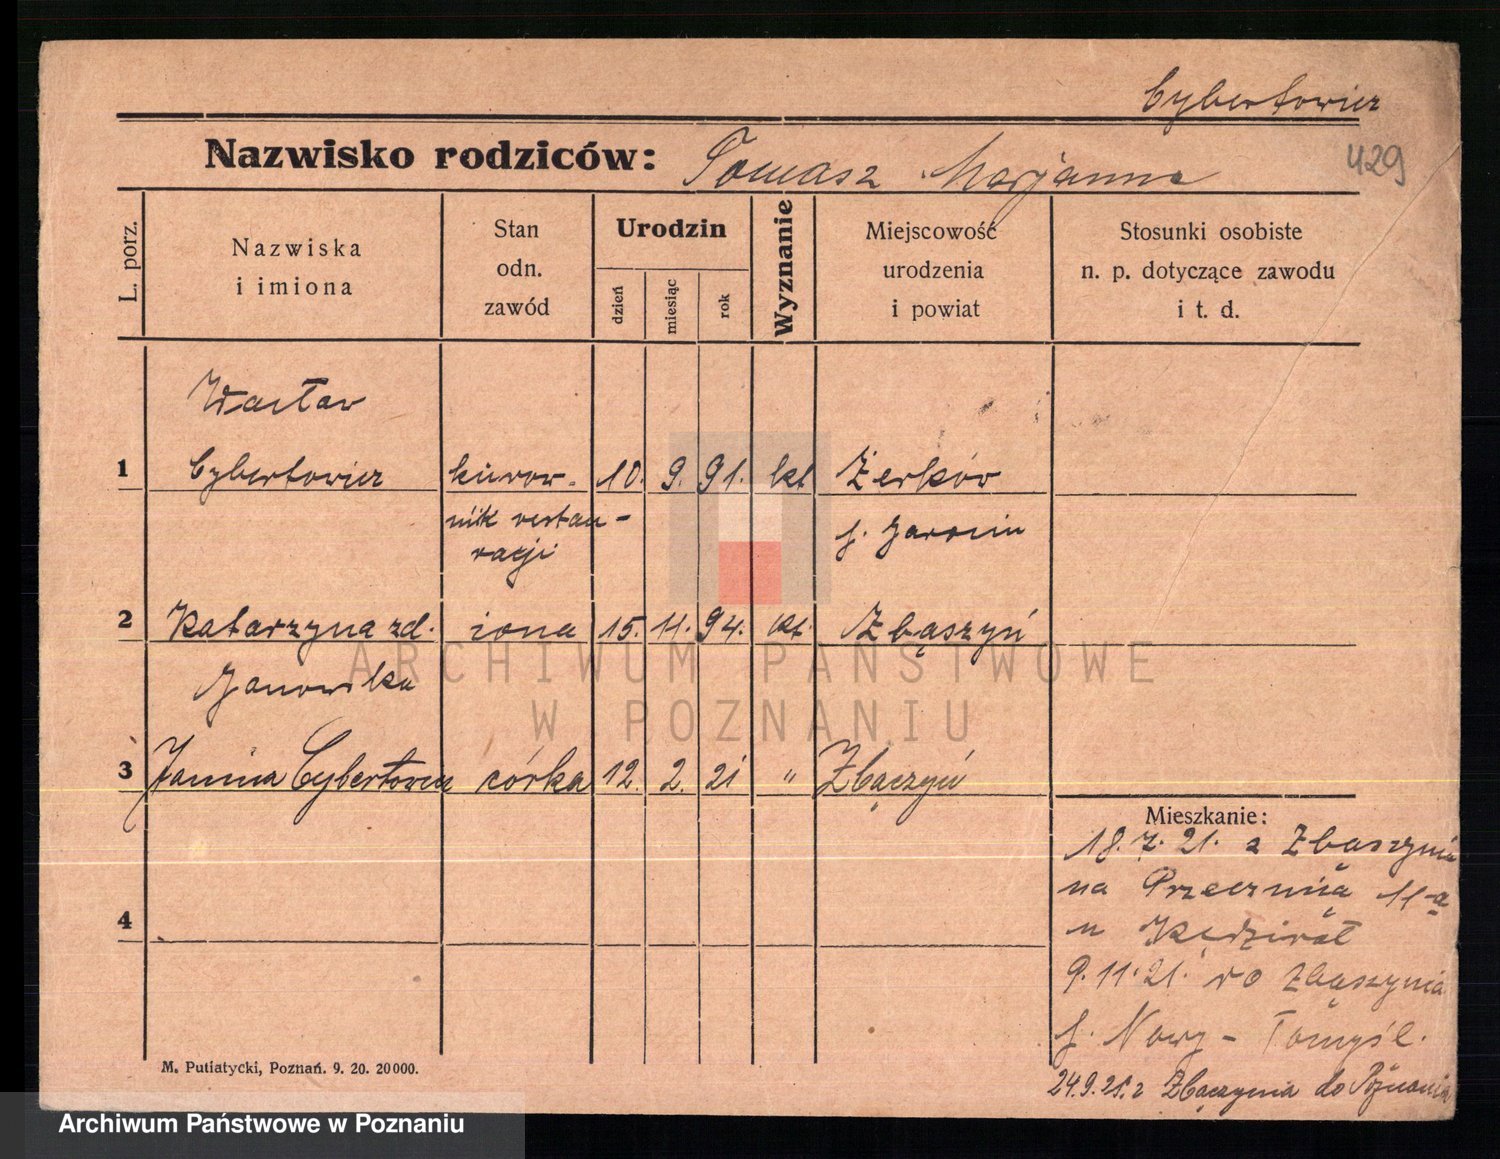 Cybertowicz
Nazwisko rodziców: Tomasz Marjanna
429
L. porz.
Nazwiska
i imiona
Stan
odn.
zawód
Urodzin
dzień
miesiąc
rok
Wyznanie
Miejscowość
urodzenia
i powiat
Stosunki osobiste
n. p. dotyczące zawodu
i t. d.
Wacław
1 Cybertowicz kierow- 10. 9. 91. kt Żerków
nik restau-
p. Jarocin
racji
2 Katarzyna zd. żona 15. 11. 94. kt. Zbąszyń
Janowska
3 Janina Cybertowicz córka 12. 2. 21 „ Zbączyń
4
Mieszkanie:
18.7.21. z Zbąszynia
na 11a
u
9.11.21. do Zbąszynia
p. Nowy-Tomyśl.
24.9.25. z Zbączynia do Poznania
M. Putiatycki, Poznań. 9. 20. 20000.
ARCHIWUM PAŃSTWOWE
W POZNANIU
Archiwum Państwowe w Poznaniu